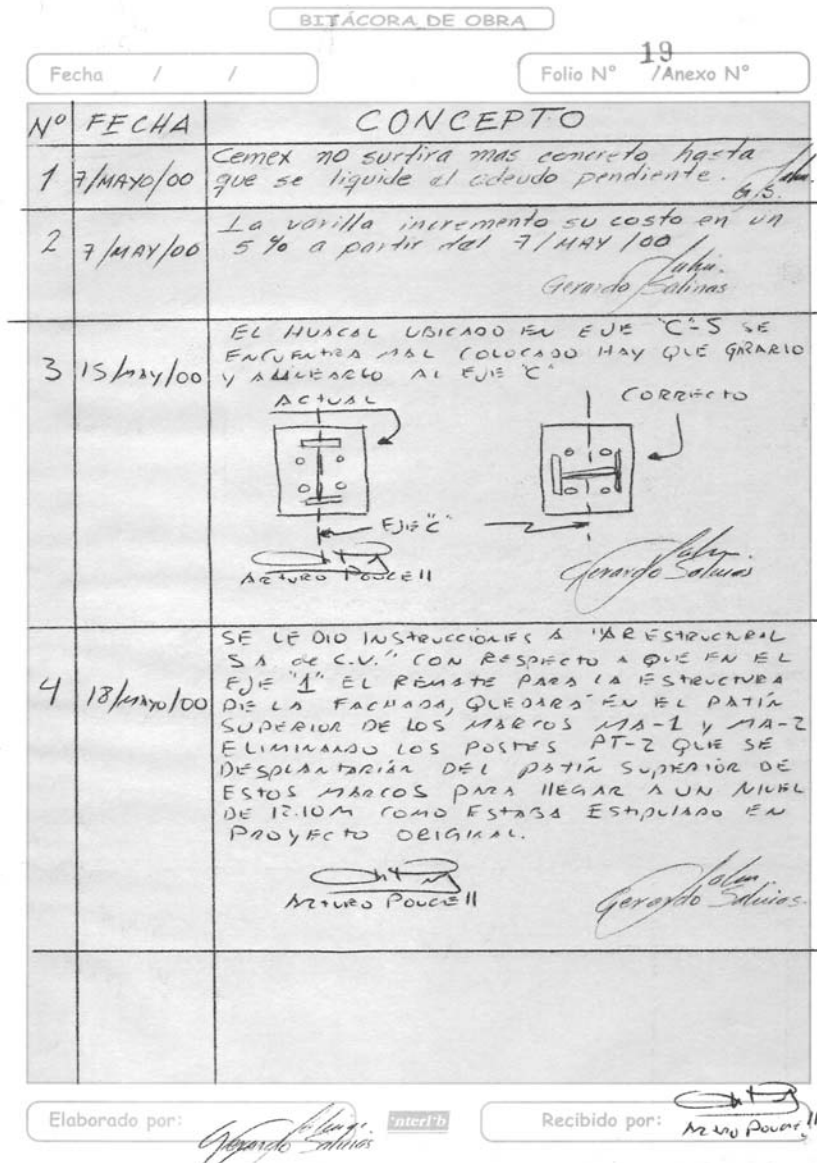 BITÁCORA DE OBRA
Fecha / /
19
Folio N° /Anexo N°
Nº FECHA CONCEPTO
1 7/MAYO/00 Cemex no surtira mas concreto hasta
que se liquide el adeudo pendiente.
G.S.
2 7/MAY/00 La varilla incremento su costo en un
5 % a partir del 7/MAY/00
Gerardo Salinas
3 15/MAY/00 EL HUACAL UBICADO EN EJE "C"-5 SE
ENCUENTRA MAL COLOCADO HAY QUE GIRARLO
Y ALINEARLO AL EJE "C"
ACTUAL
CORRECTO
EJE "C"
ARTURO POUCELL
Gerardo Salinas
4 18/MAYO/00 SE LE DIO INSTRUCCIONES A "AR ESTRUCTURAL
SA de C.V." CON RESPECTO A QUE EN EL
EJE "1" EL REMATE PARA LA ESTRUCTURA
DE LA FACHADA, QUEDARA EN EL PATIN
SUPERIOR DE LOS MARCOS MA-1 Y MA-2
ELIMINANDO LOS POSTES PT-2 QUE SE
DESPLANTARIAN DEL PATIN SUPERIOR DE
ESTOS MARCOS PARA LLEGAR A UN NIVEL
DE 12.10M COMO ESTABA ESTIPULADO EN
PROYECTO ORIGINAL.
ARTURO POUCELL
Gerardo Salinas.
Elaborado por:
Gerardo Salinas
Recibido por:
ARTURO POUCELL